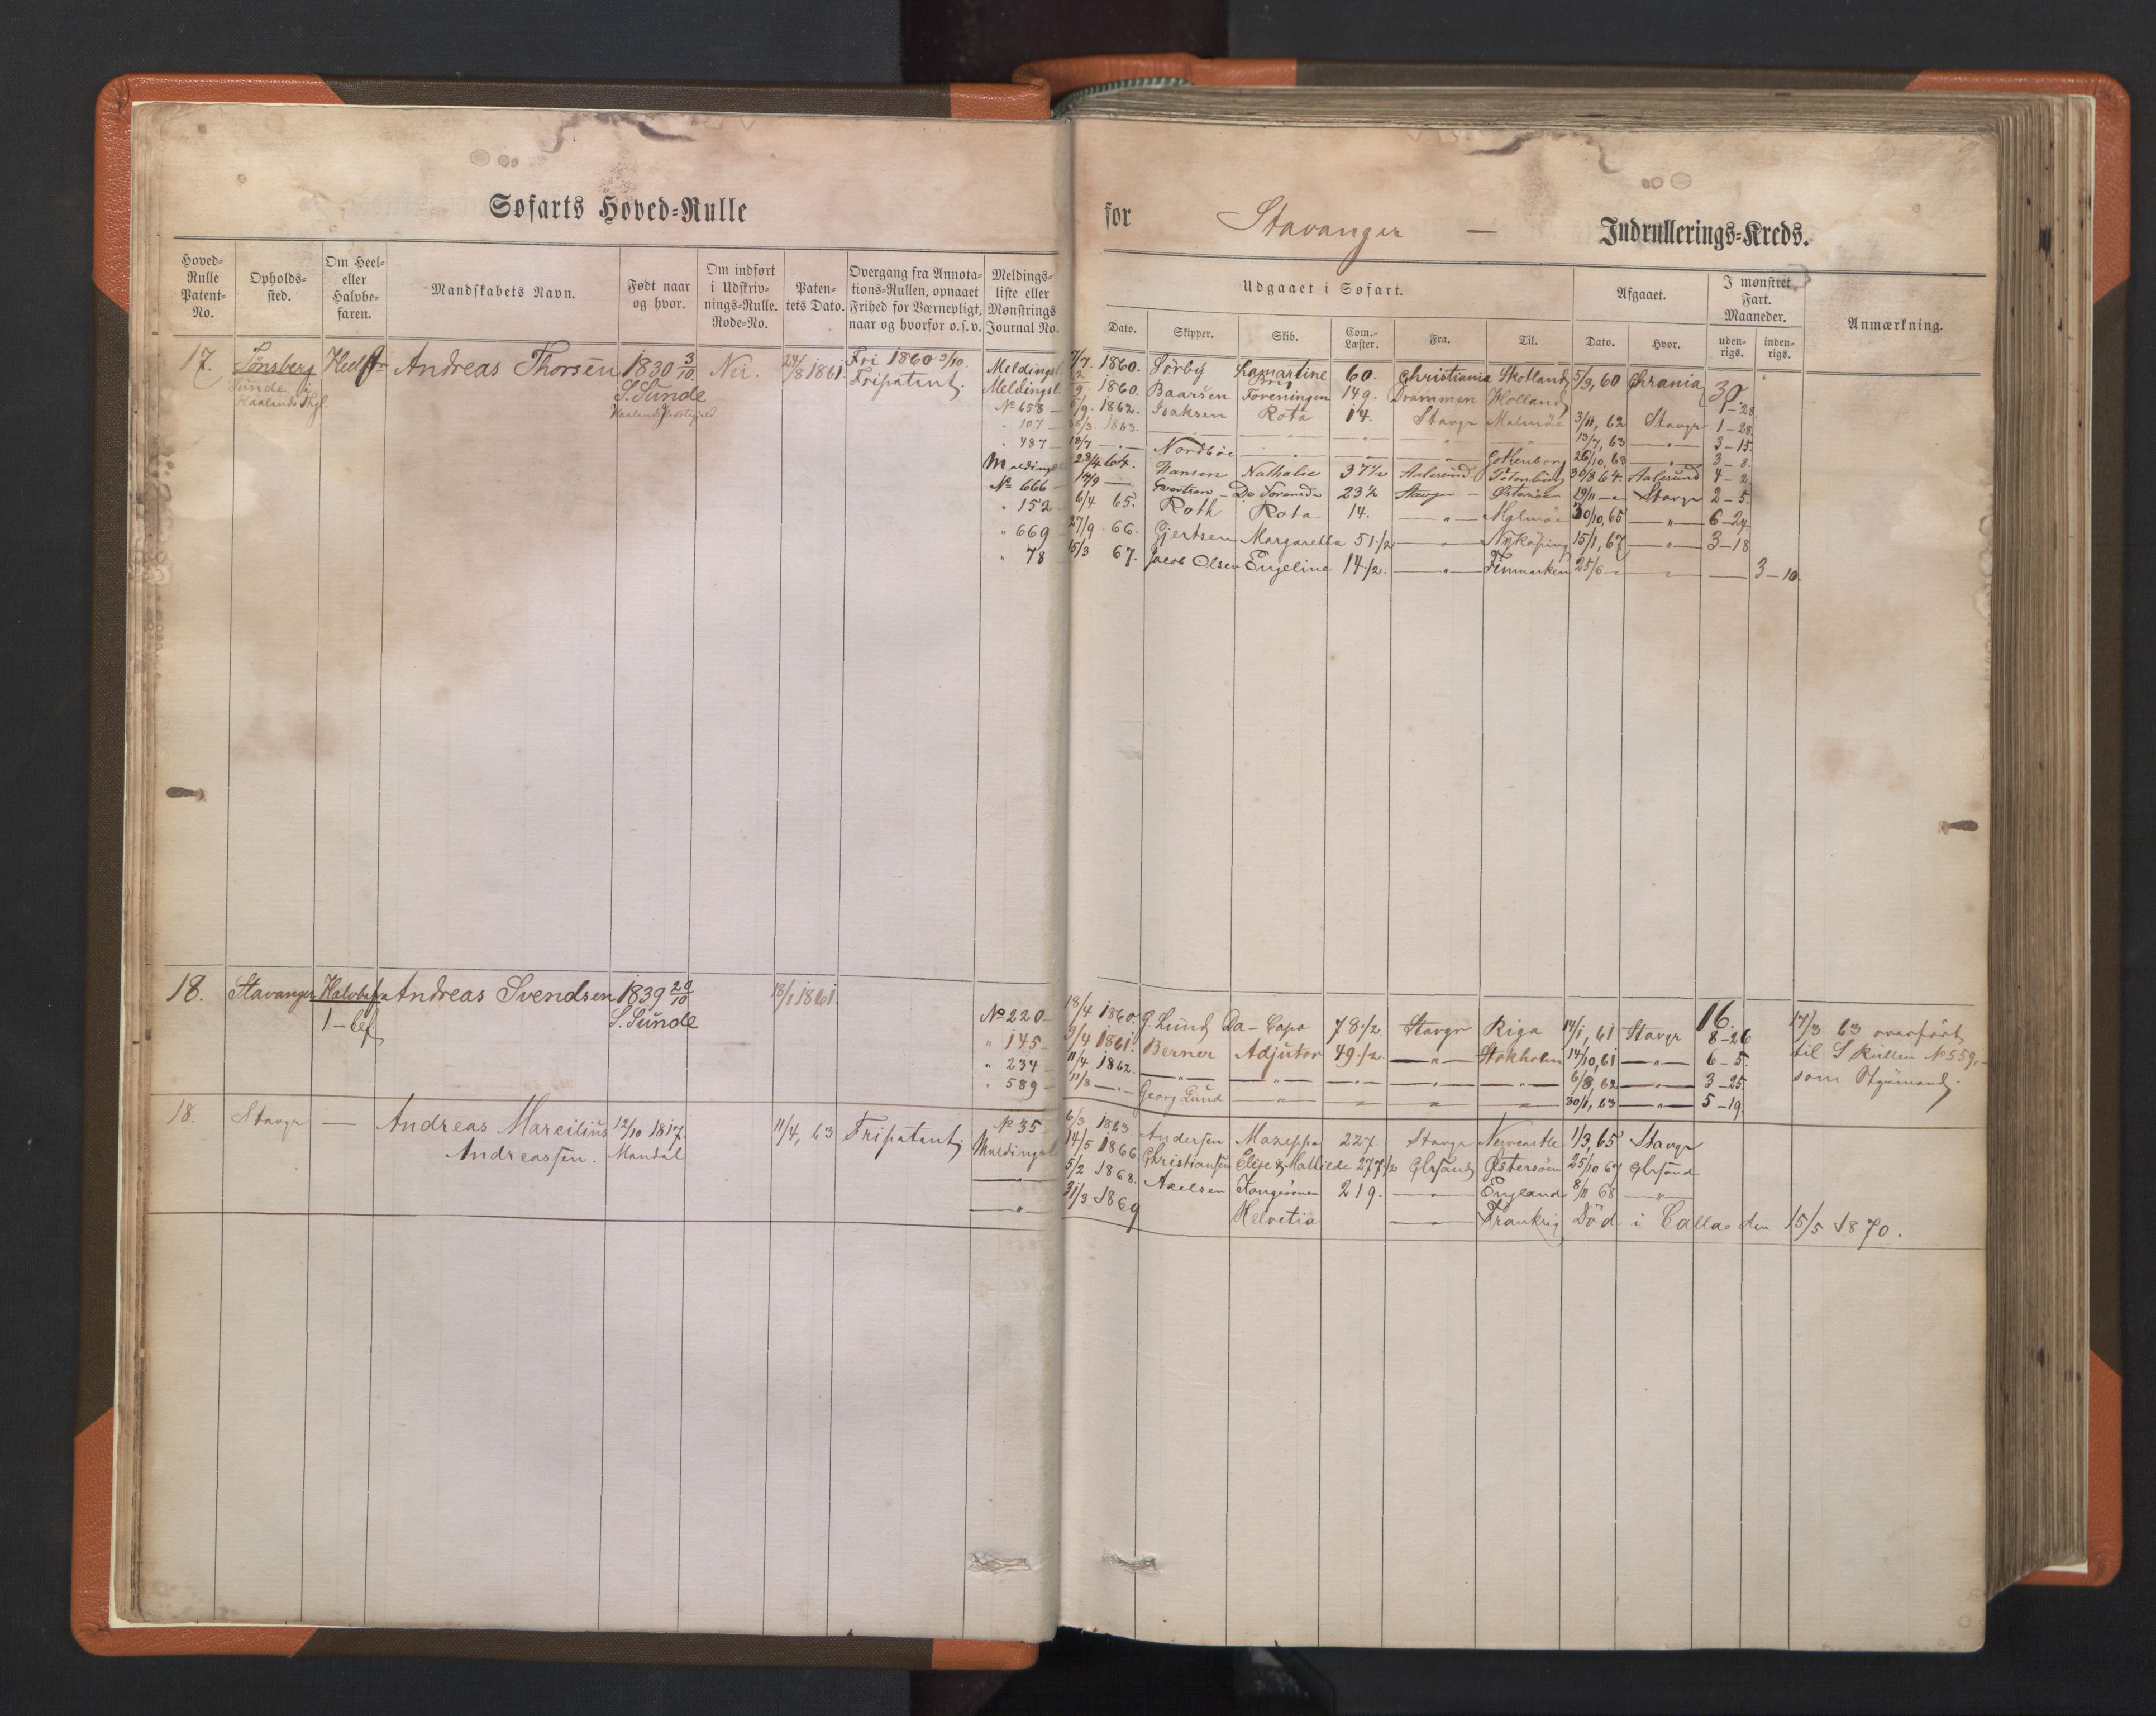 Søfarts Hoved-Rulle
for Stavanger — Indrullerings-Kreds.
Hoved-Rulle Patent-No.
Opholds-sted.
Om Heel- eller Halvbe-faren.
Mandskabets Navn.
Født naar og hvor.
Om indført i Udskriv-nings-Rulle. Rode-No.
Paten-tets Dato.
Overgang fra Annota-tions-Rullen, opnaaet Frihed for Værnepligt, naar og hvorfor o.s.v.
Meldings-liste eller Mønstrings Journal No.
Udgaaet i Søfart.
Dato. Skipper. Skib. Com.-Læster. Fra. Til.
Afgaaet.
Dato. Hvor.
I mønstret Fart. Maaneder.
uden-rigs. inden-rigs.
Anmærkning.
17. Tønsberg Heelbf. Andreas Thorsen 1830 3/10 Nei. 24/8 1861 Fri 1860 3/10.
Sunde i S. Sunde Fripatent.
Haalands Thgl. Haalands Præstegjeld
Meldingsl 7/7 1860. Sørby Lamartine 60. Christiania Skotland 5/9, 60 Chrania 30.
Meldingsl 1860. Baarsen Brig Foreningen 149. Drammen Holland
No 658 – 5/9 1862. Isaksen Rota 14. Stavgr Malmöe 3/11, 62 Stavgr 1–28
" 107 – 28/3 1863. — " — 13/7, 63 — " — 3–15.
" 487 – 18/7 — " — Nordbøe — " — Gothenborg 26/10, 63 — " — 3–8.
Meldingsl 23/4 64. Hansen Nathalie 37 1/2 Aalesund 30/8 64. Aalesund 4–2
No 666 – 14/9 — Evertsen – De Forenede 23 1/2 Stavgr – Østersøen 19/11 — Stavgr 2–5.
" 152 – 6/4 65. Roth Rota 14. — " — Malmöe 30/10, 65 — " — 6–24
" 669 – 27/9 66. Gjertsen Margaretha 51 1/2 — " — Nykøping 15/1, 67 — " — 3–18
" 78 – 15/3 67. Jacob Olsen Engeline 14 1/2. — " — Finmarken 25/6 — 3–10.
18. Stavanger Halvbef. Andreas Svendsen 1839 20/10 18/1 1861.
1–bef S. Sunde
No 220 – 18/4 1860. G. Lund Da–Capo 78 1/2. Stavgr Riga 14/1, 61 Stavgr 16. 8–26
" 145 – 9/4 1861. Berner Adjutor 49 1/2. — " — Stokholm 14/10, 61 — " — 6–5.
" 234 – 11/4 1862. — " — 6/8, 62 — " — 3–25.
" 589 – 11/8 — " — Georg Lund — " — 30/1, 63 — " — 5–19
17/3 63 overført
til S Rullen No 559.
som Styrmand.
18. Stavgr — Andreas Marcilius 12/10 1817. 11/4, 63 Fripatent
Andreassen. Mandal
No 35 – 6/3 1863 Andersen Mazeppa 227. Stavgr Newcastle 1/3, 65 Stavgr
Meldingsl 14/5 1866 Christiansen Elise & Mathilde 277 1/2 Chrsand Østersøen 25/10 67 Chrsand
— " — 5/2 1868. Axelsen 219. — " — England 8/11 68 — " —
— " — 31/3 1869 Helvetia — " — Frankrig Død i Callao den 15/5 1870.